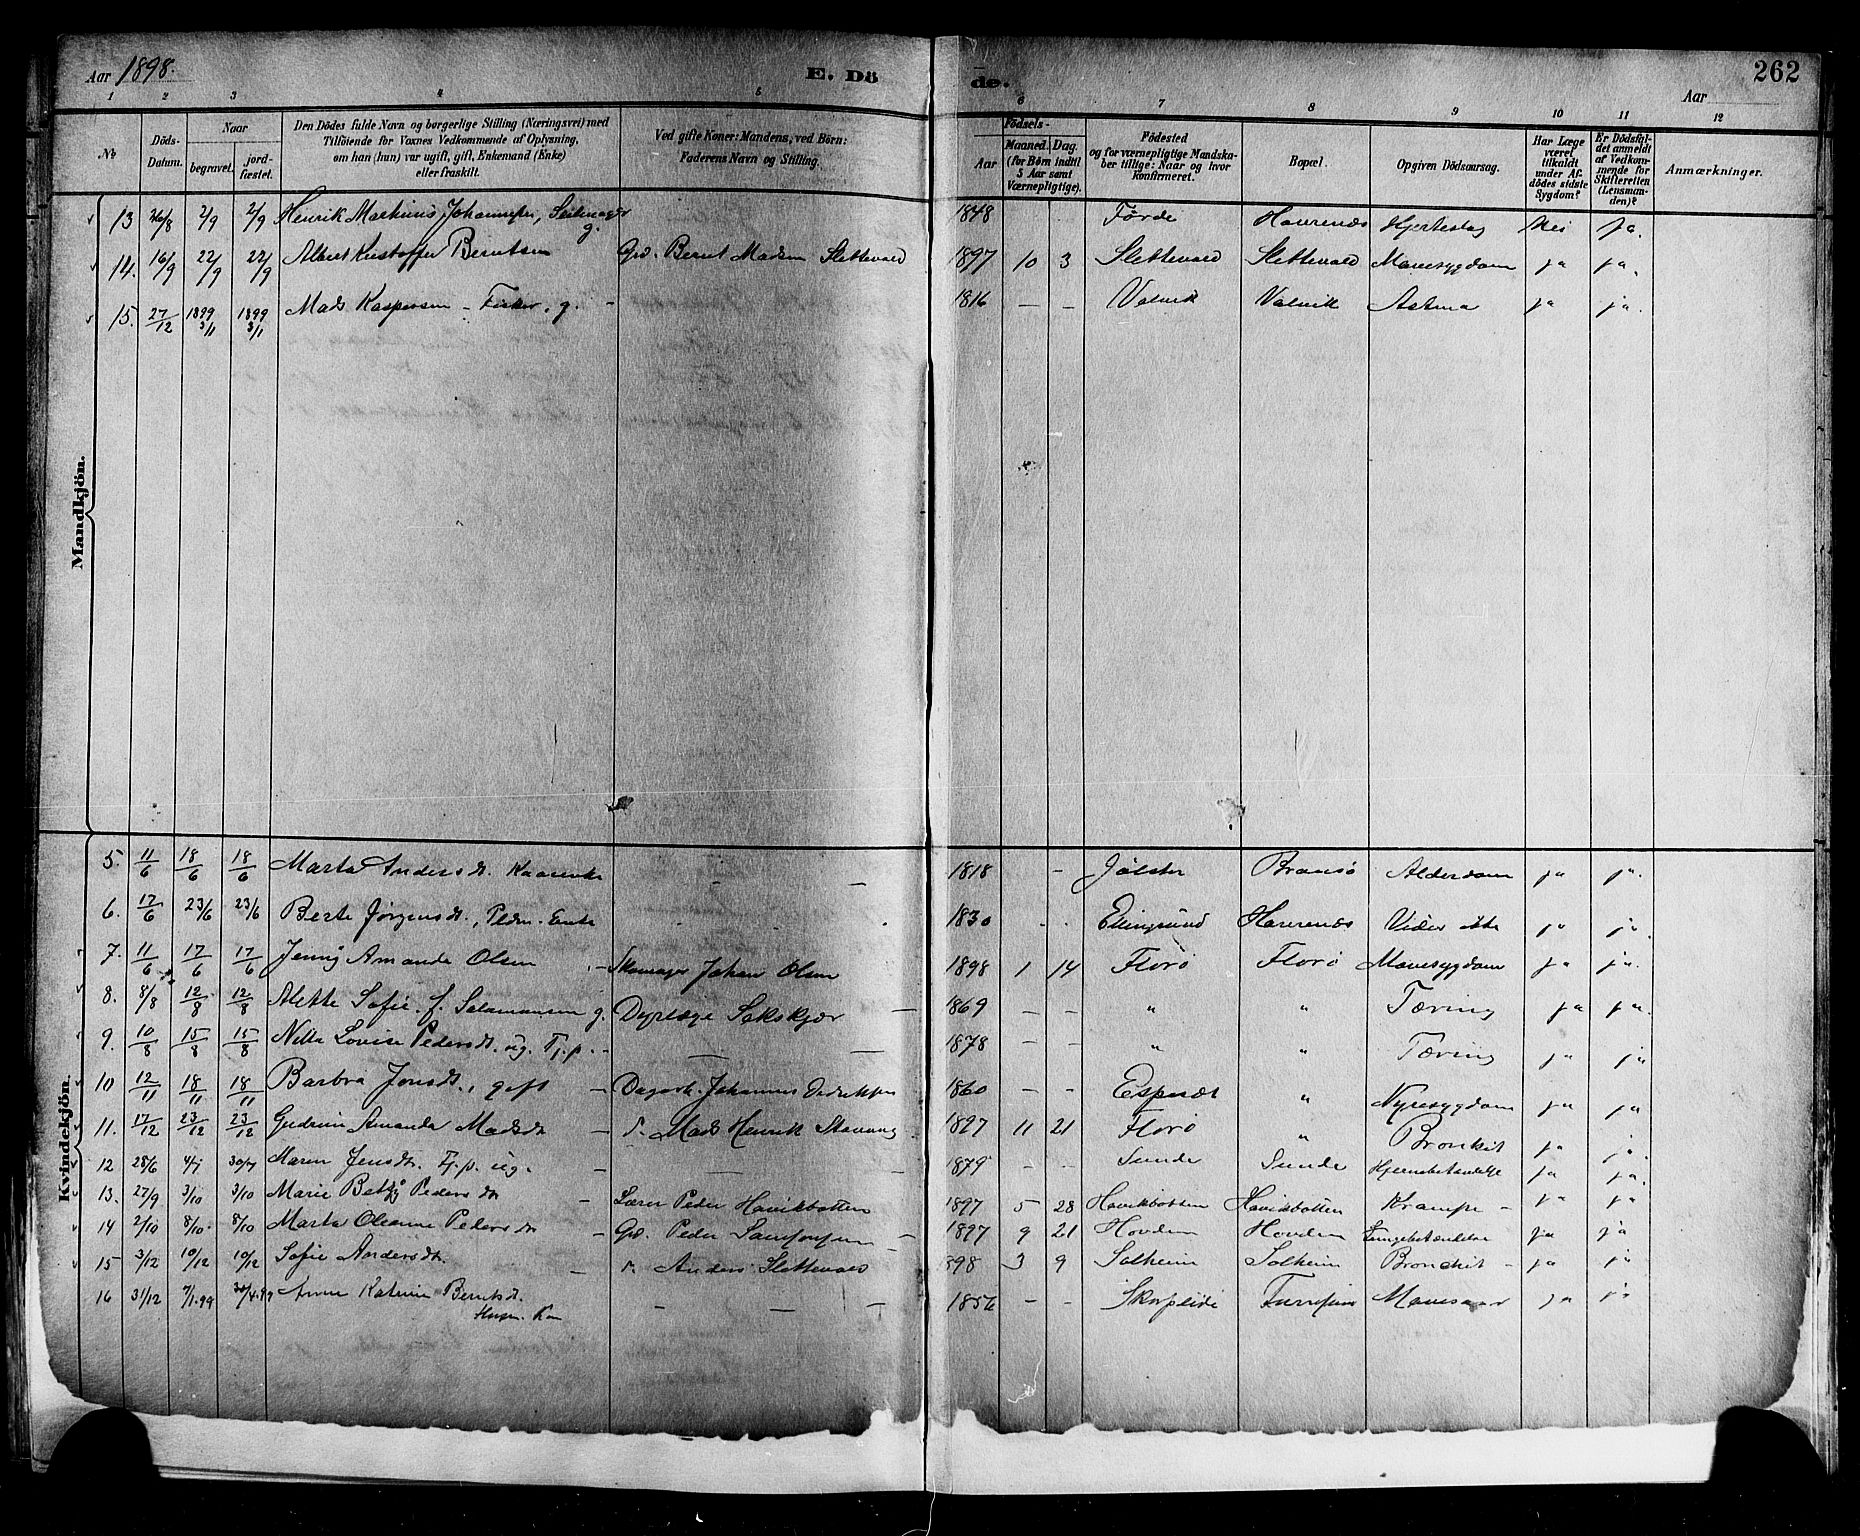 Aar 1898. E. Dö de. Aar 262
1 2 3 4 5 6 7 8 9 10 11 12
No Döds-Datum. Naar begravet. jordfæstet. Den Dödes fulde Navn og borgerlige Stilling (Næringsvei) med Tilföiende for Voxnes Vedkommende af Oplysning, om han (hun) var ugift, gift, Enkemand (Enke) eller fraskilt. Ved gifte Koner: Mandens, ved Börn: Faderens Navn og Stilling. Födsels- Aar Maaned. Dag. (for Börn indtil 5 Aar samt Værnepligtige). Födested og for værnepligtige Mandskaber tillige: Naar og hvor konfirmeret. Bopæl. Opgiven Dödsaarsag. Har Læge været tilkaldt under Afdödes sidste Sygdom? Er Dödsfaldet anmeldt af Vedkommende for Skifteretten (Lensmanden)? Anmærkninger.
Mandkjön.
13 26/8 2/9 2/9 Henrik Martinus Johannesen, g. 1848 Førde Havrenæs Hjerteslag Nei ja.
14. 16/9 22/9 22/9 Albert Kristoffer Berntsen Grd. Bernt Madsen Slettevald 1897 10 3 Slettevald Slettevald Mavesygdom ja ja.
15. 27/12 1899 3/1 1899 3/1 Mads Kaspersen – Fisker, g. – 1816 – – Valvik Valvik Astma ja ja.
Kvindekjön.
5. 11/6 18/6 18/6 Marta Andersdt. – – 1818 – Jølster Bransø Alderdom ja ja.
6. 17/6 23/6 23/6 Berte Jørgensdt., Enke 1830 Havrenæs Vides ikke ja ja.
7. 11/6 17/6 17/6 Jenny Amanda Olsen – Skomager Johan Olsen 1898 1 14 Florø Florø Mavesygdom ja ja.
8. 8/8 12/8 12/8 Alette Sofie f. Salamonsen g. Dyrlæge – 1869 – – " " Tæring ja ja.
9. 10/8 15/8 15/8 Nille Lovise Pedersdt. ug. Tj.p. – – – 1878 – – " " Tæring ja ja
10 12/11 18/11 18/11 Barbra Jonsdt., gift – Dagarb. Johannes Didriksen 1860 – – Espesæt " Nyresygdom ja ja
11. 17/12 23/12 23/12 Gudrun Amanda Madsdt – Mads Henrik Stavang 1897 11 21 Florø " Bronkit ja ja.
12 28/6 4/7 30/7 Maren Jensdt. Tj.p. ug. – – – 1879 – – Sunde Sunde Hjernebetændelse ja ja.
13. 27/9 3/10 3/10 Marie Betsy Pedersdt – Lærer Peder Havikbotten 1897 5 28 Havikbotten Havikbotten Krampe – ja ja
14 2/10 8/10. 8/10 Marta Oleanne Pedersdt – Grd. Peder Samsonsen – 1897 9 21 Hovden Hovden Lungebetændelse ja ja
15 3/12 10/12 10/12 Sofie Andersdt. – Anders Slettevald 898 3 9 Solheim Solheim Bronchit – ja ja
16 31/12 7/1.99 30/4.99 Anne Katrine Berntsdt. Husm. Kone – – 1856 – – Mavesaar ja ja